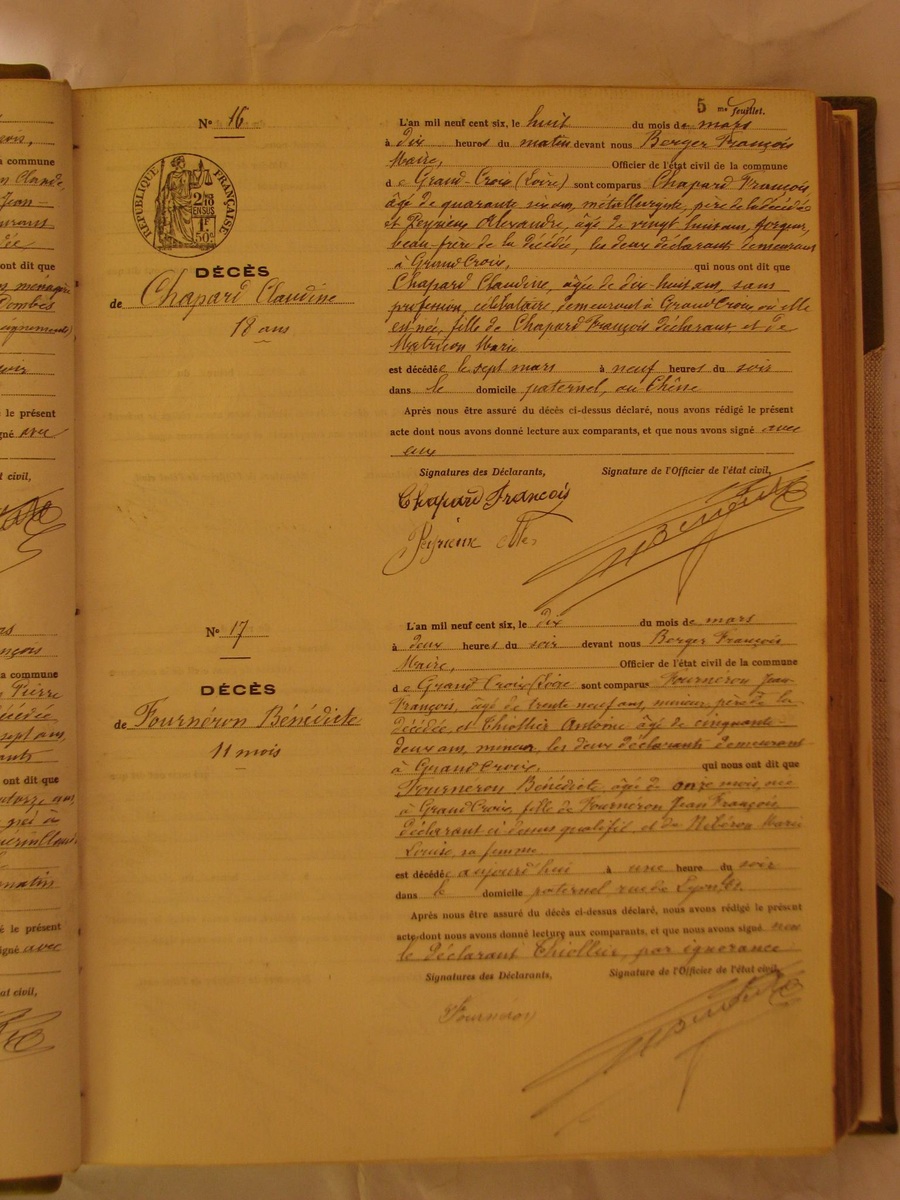 5 me feuillet.
N° 16
RÉPUBLIQUE FRANÇAISE
2/10 EN SUS
1F 50c
DÉCÈS
de Chapard Claudine
18 ans
L'an mil neuf cent six, le huit du mois de mars
à dix heures du matin devant nous Berger François
Maire, Officier de l'état civil de la commune
de Grand-Croix (Loire) sont comparus Chapard François
âgé de quarante six ans, métallurgiste, père de la décédée
et Peyrieux Alexandre, âgé de vingt huit ans, forgeur,
beau-frère de la décédée, les deux déclarants demeurant
à Grand Croix, qui nous ont dit que
Chapard Claudine, âgée de dix-huit ans, sans
profession, célibataire, demeurant à Grand Croix où elle
est née, fille de Chapard François déclarant et de
Matricon Marie
est décédée le sept mars à neuf heures du soir
dans le domicile paternel, au Chêne
Après nous être assuré du décès ci-dessus déclaré, nous avons rédigé le présent
acte dont nous avons donné lecture aux comparants, et que nous avons signé avec
eux
Signatures des Déclarants, Signature de l'Officier de l'état civil,
Chapard François
Peyrieux
N° 17
DÉCÈS
de Fournéron Bénédicte
11 mois
L'an mil neuf cent six, le dix du mois de mars
à deux heures du soir devant nous Berger François
Maire, Officier de l'état civil de la commune
de Grand Croix (Loire sont comparus Fournéron Jean-
François, âgé de trente neuf ans, mineur, père de la
décédée et Thiollier Antoine âgé de cinquante-
deux ans, mineur, les deux déclarants demeurant
à Grand Croix, qui nous ont dit que
Fournéron Bénédicte, âgée de onze mois, née
à Grand Croix, fille de Fournéron Jean François
déclarant ci dessus qualifié et de Marie
Louise, sa femme
est décédée aujourd'hui à une heure du soir
dans le domicile paternel rue de Lyon
Après nous être assuré du décès ci-dessus déclaré, nous avons rédigé le présent
acte dont nous avons donné lecture aux comparants, et que nous avons signé non
le déclarant Thiollier, par ignorance
Signatures des Déclarants, Signature de l'Officier de l'état civil,
Fournéron